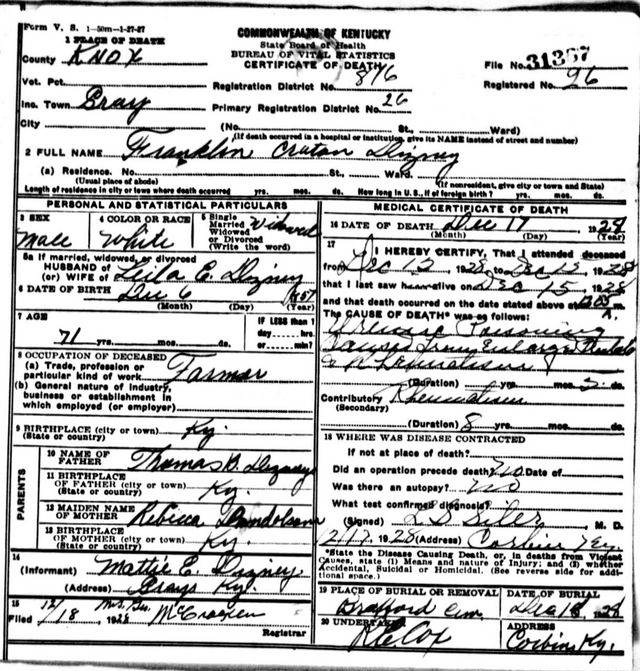 Form V. S. 1-50m-1-27-27
COMMONWEALTH OF KENTUCKY
State Board of Health
BUREAU OF VITAL STATISTICS
CERTIFICATE OF DEATH
1 PLACE OF DEATH
County Knox
File No. 31367
Vot. Pct.
Registration District No. 876
Registered No. 96
Inc. Town Bray
Primary Registration District No. 26
City (No. St., Ward)
(If death occurred in a hospital or institution, give its NAME instead of street and number)
2 FULL NAME Franklin Dizney
(a) Residence. No. St., Ward.
(Usual place of abode) (If nonresident, give city or town and State)
Length of residence in city or town where death occurred yrs. mos. ds. How long in U. S., if of foreign birth? yrs. mos. ds.
PERSONAL AND STATISTICAL PARTICULARS
3 SEX Male
4 COLOR OR RACE White
5 Single Married Widowed or Divorced (Write the word) Widowed
5a If married, widowed, or divorced
HUSBAND OF
(or) WIFE OF Leila E. Dizney
6 DATE OF BIRTH Dec 6 1857
(Month) (Day) (Year)
7 AGE
71 yrs. mos. ds.
IF LESS than 1 day hrs. or min.?
8 OCCUPATION OF DECEASED
(a) Trade, profession or particular kind of work Farmer
(b) General nature of industry, business or establishment in which employed (or employer)
9 BIRTHPLACE (city or town) Ky.
(State or country)
PARENTS
10 NAME OF FATHER Thomas B. Dizney
11 BIRTHPLACE OF FATHER (city or town) Ky.
(State or country)
12 MAIDEN NAME OF MOTHER Rebicca
13 BIRTHPLACE OF MOTHER (city or town) Ky
(State or country)
14
(Informant) Mattie E. Dizney
(Address) Brays Ky.
15
Filed 12/18 1928 McCracken
Registrar
MEDICAL CERTIFICATE OF DEATH
16 DATE OF DEATH Dec 17 1928
(Month) (Day) (Year)
17
I HEREBY CERTIFY, That I attended deceased
from Dec 12 1928 to Dec 15 1928
that I last saw him alive on Dec 15 1928
and that death occurred on the date stated above at m.
The CAUSE OF DEATH* was as follows:
Uremic Poisoning
Caused from Enlarged
& Rheumatism
(Duration) yrs. mos. ds.
Contributory Rheumatism
(Secondary)
(Duration) 8 yrs. mos. ds.
18 WHERE WAS DISEASE CONTRACTED
If not at place of death?
Did an operation precede death? No. Date of
Was there an autopsy? No
What test confirmed diagnosis?
(Signed) Siler M. D.
12/17 1928 (Address) Corbin Ky
*State the Disease Causing Death, or, in deaths from Violent Causes, state (1) Means and nature of Injury; and (2) whether Accidental, Suicidal or Homicidal. (See reverse side for additional space.)
19 PLACE OF BURIAL OR REMOVAL
Cem.
DATE OF BURIAL
Dec 18 1928
20 UNDERTAKER
Cox
ADDRESS
Corbin Ky.